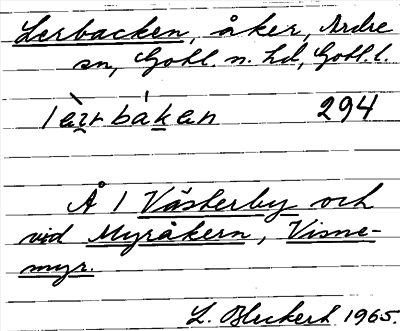 Lerbacken, åker, Ardre
sn, Gotl. n. hd, Gotl. l.
lèirbákan 294
Å 1 Västerby och
vid Myråkern, Visne-
myr.
L. Bleckert 1965.